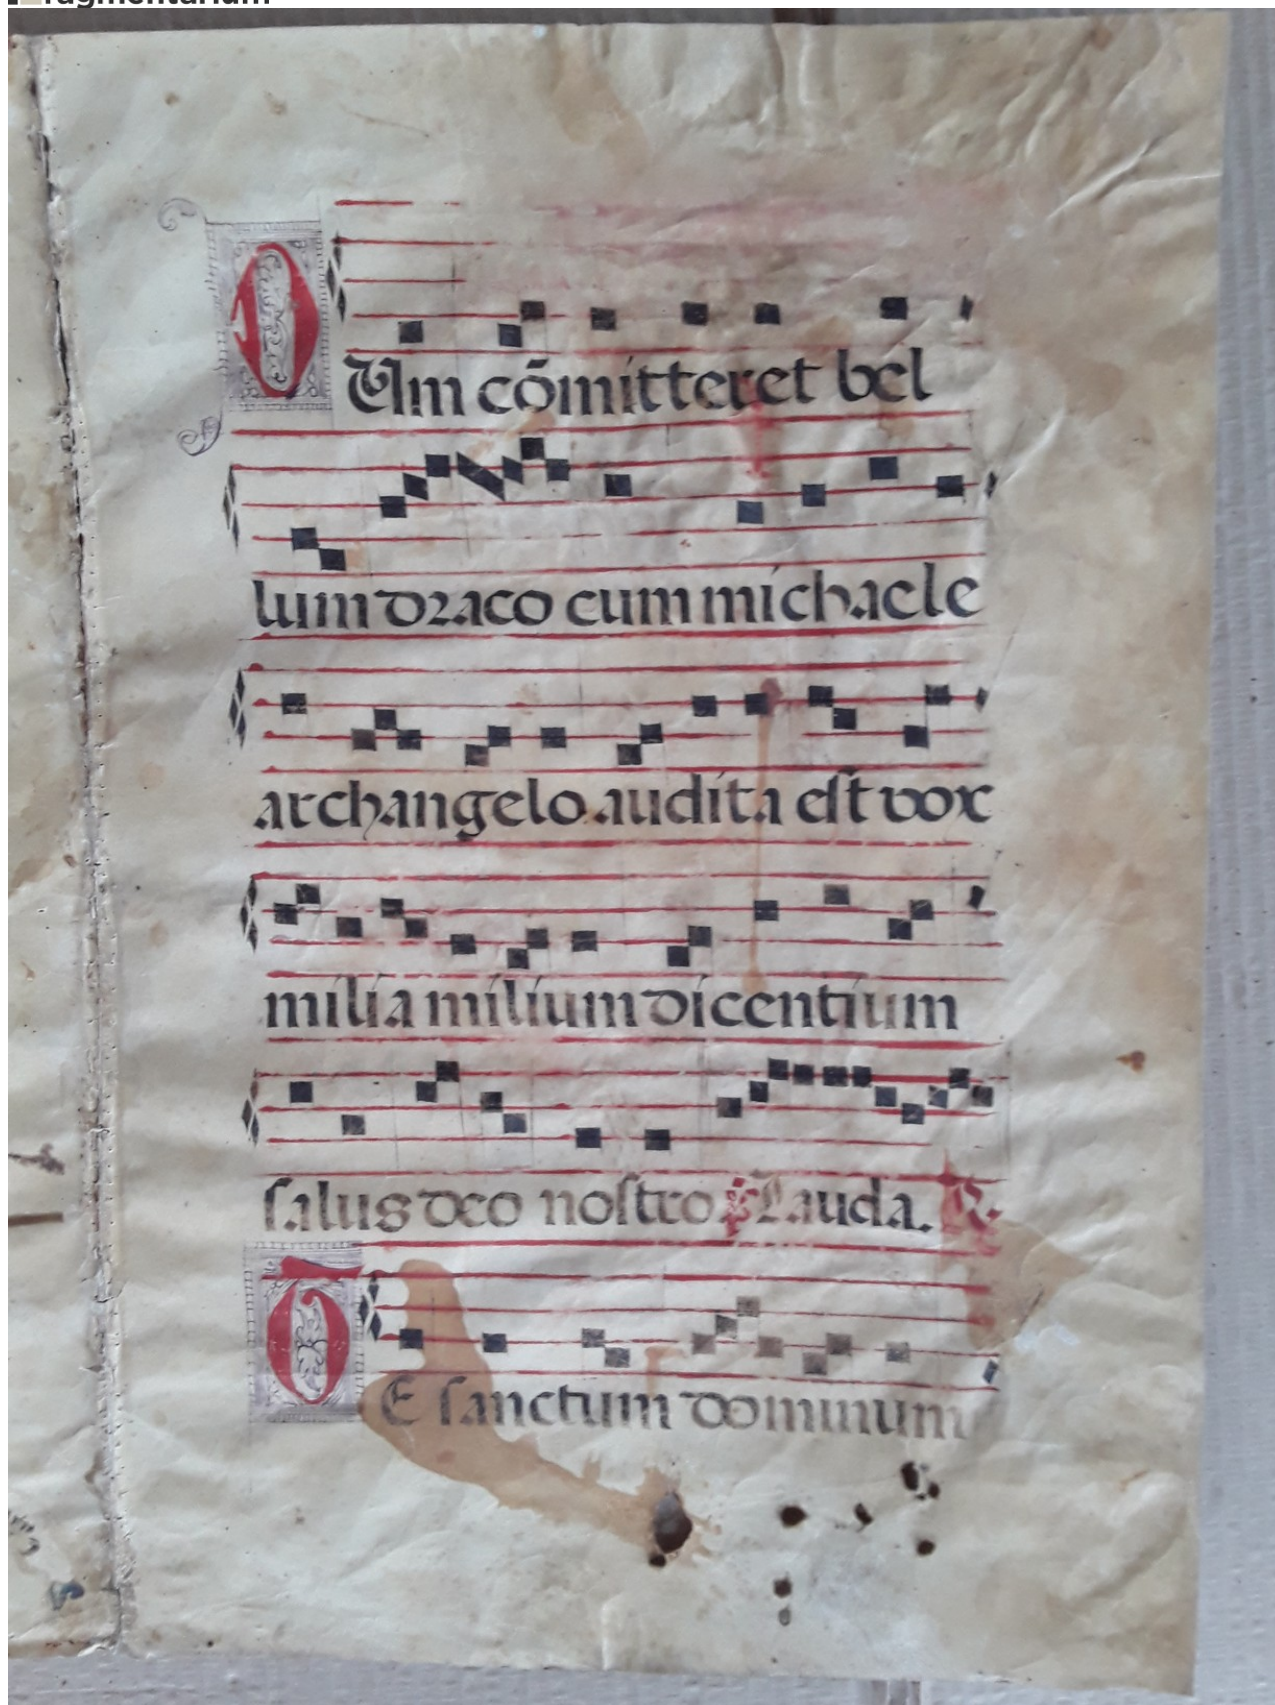 ragmentarium
DUm cõmitteret bel
lum draco cum michaele
archangelo audita est vox
milia milium dicentium
salus deo nostro ℣ Lauda. ℟.
TE sanctum dominum